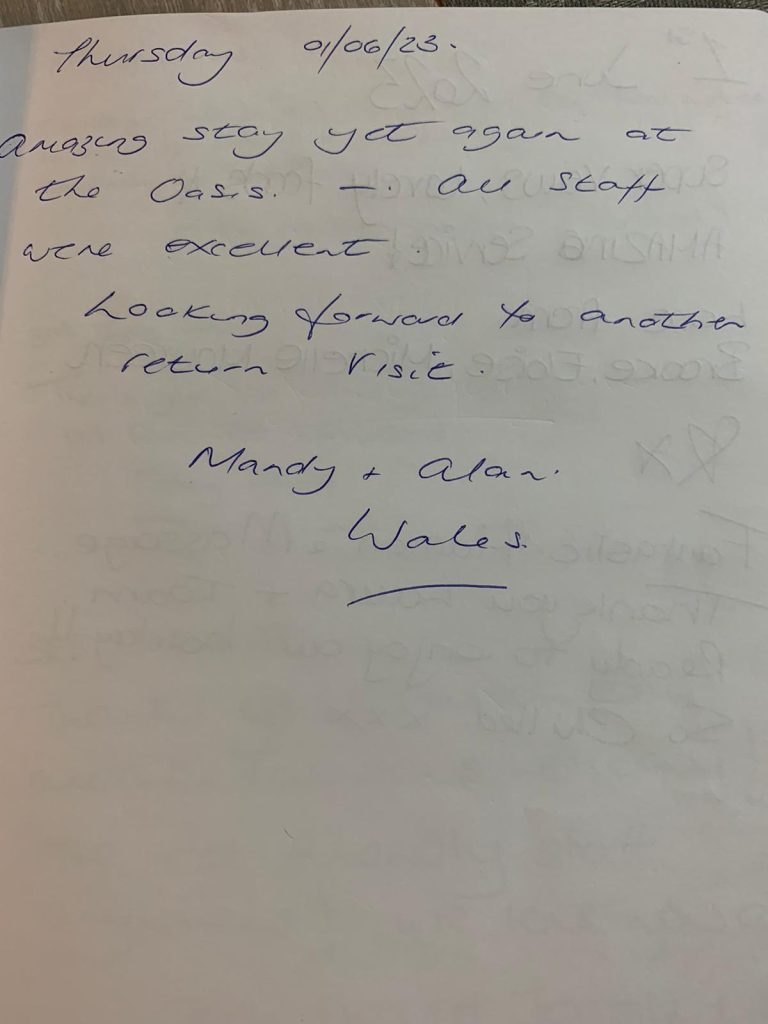 Thursday 01/06/23.
Amazing stay yet again at
the Oasis. —. All staff
were excellent.
Looking forward to another
return visit.
Mandy + Alan.
Wales.